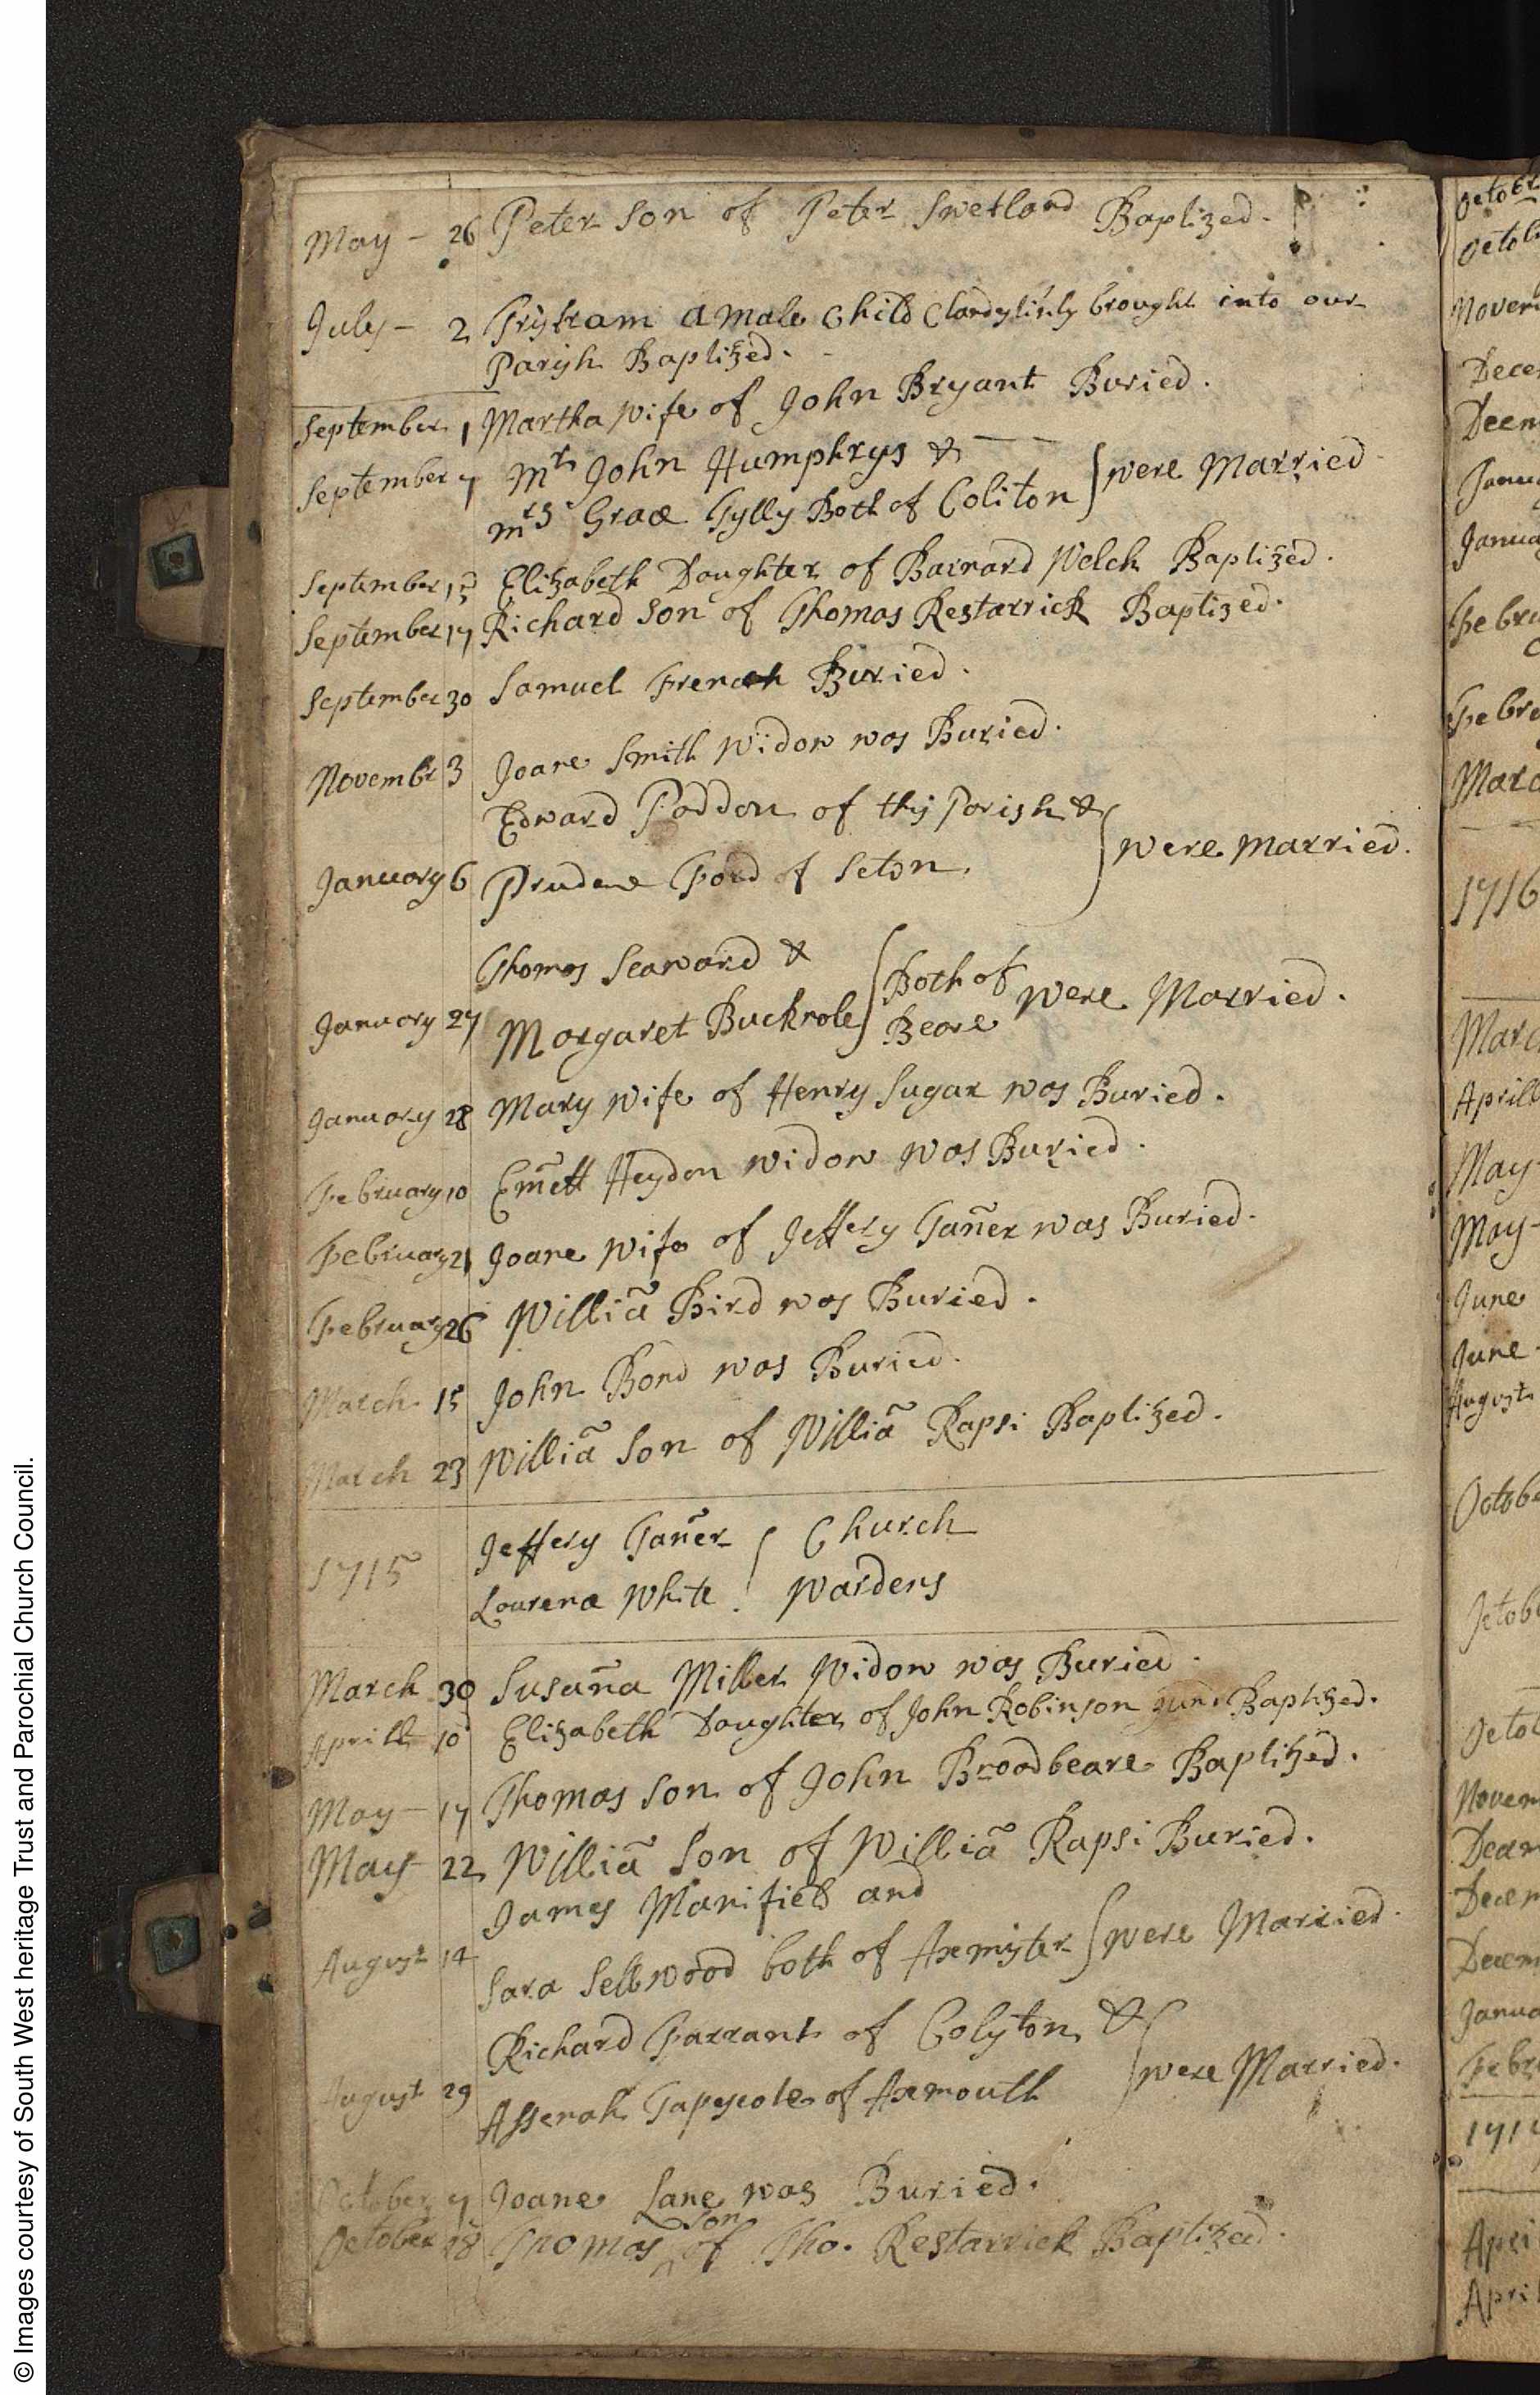 May - 26 Peter Son of Peter Swetland Baptized.
July - 2 Trystram a male Child Clandystinly brought into our
Parysh Baptized.
September 1 Martha wife of John Bryant Buried.
September 7 Mr John Humphrys &
mrs Grace Tylly Both of Coliton were Married
September Elizabeth Daughter of Barnard Welch Baptized.
September 17 Richard Son of Thomas Restarrick Baptized.
September 30 Samuel French Buried.
Novembr 3 Joane Smith Widow was Buried.
Edward Poddon of thys Parish &
January 6 Prudence Ford of Seton. were married.
Thomas Seaward &
January 27 Margaret Bucknole Both of Beare were Married.
January 28 Mary wife of Henry Sugar was Buried.
February 10 Em̃ett Heydon widow was Buried.
February 21 Joane wife of Jeffery Tañer was Buried.
February 26 Williã Bird was Buried.
March 15 John Bond was Buried.
March 23 Williã Son of Williã Rapsi Baptized.
1715 Jeffery Tañer Church
Laurence White. Wardens
March 30 Susaña Miller Widow was Buried.
Aprill 10 Elizabeth Daughter of John Robinson jun. Baptized.
May - 17 Thomas Son of John Broodbeare Baptized.
May - 22 Williã Son of Williã Rapsi Buried.
James Manifield and
August 14 Sara Sellwood both of Axmyster were Married.
Richard Farrant of Colyton &
August 29 Asserah Tapscole of Axmouth were Married.
October 7 Joane Lane was Buried.
son
October 18 Thomas of Tho. Restarrick Baptized.
Octobr
Octob
Novem
Dece
Decem
Janu
Janua
Febru
Febr
Marc
1716
Marc
Aprill
May
May
June
June
August
Octobe
Octobe
Octob
Novem
Decem
Decem
Decem
Janua
Febr
171
Apri
Apri
© Images courtesy of South West heritage Trust and Parochial Church Council.